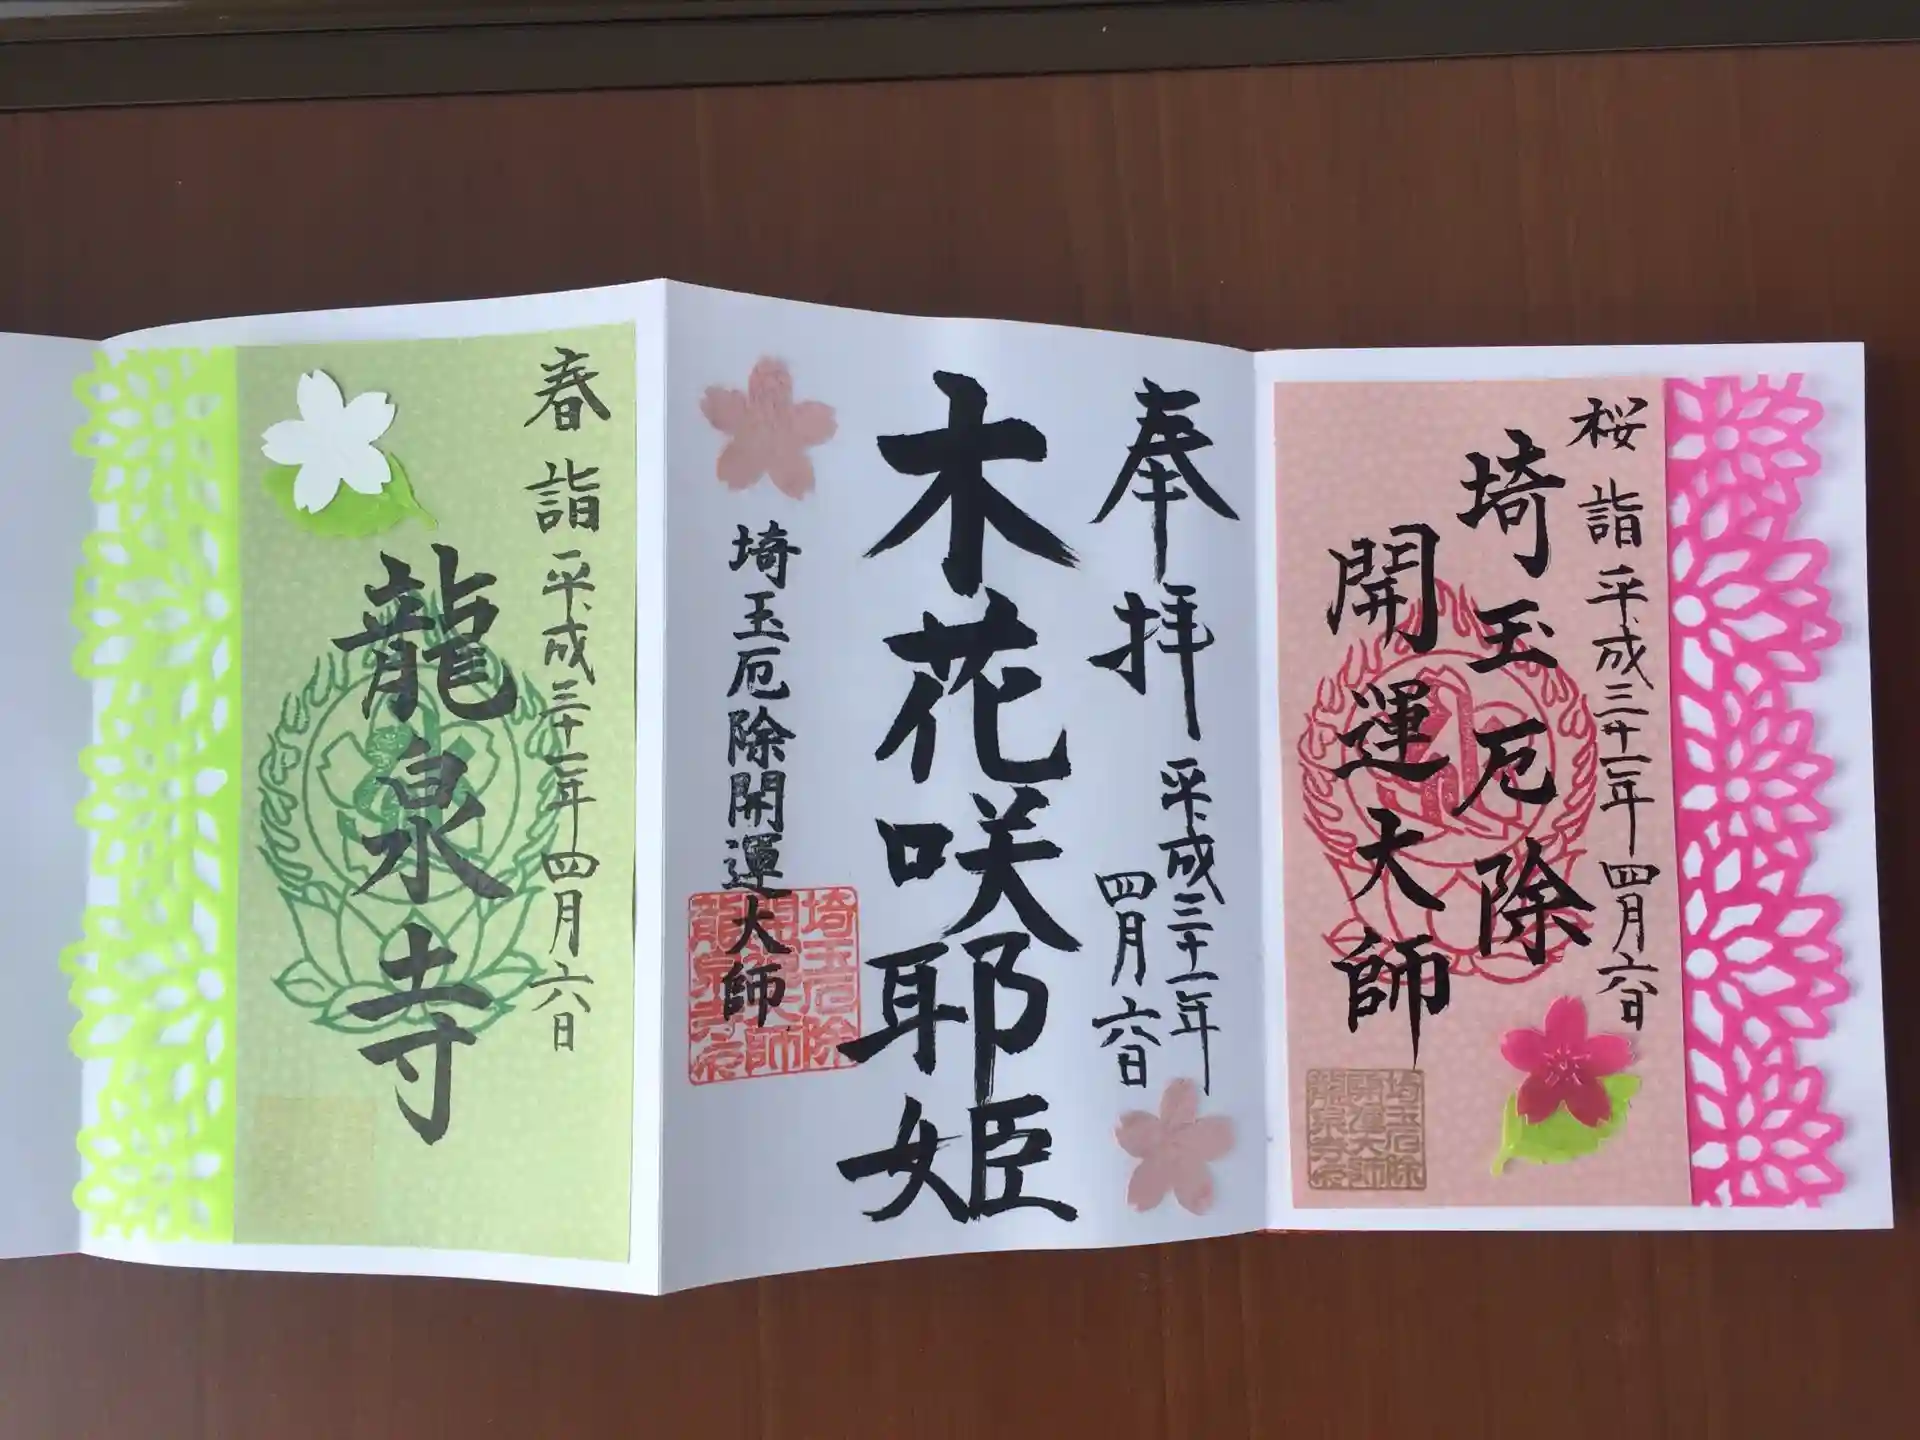 桜詣 平成三十一年四月六日
埼玉厄除
開運大師
埼玉厄除
開運大師
龍泉寺印
奉拝 平成三十一年
四月六日
木花咲耶姫
埼玉厄除開運大師
埼玉厄除
開運大師
龍泉寺印
春詣 平成三十一年四月六日
龍泉寺